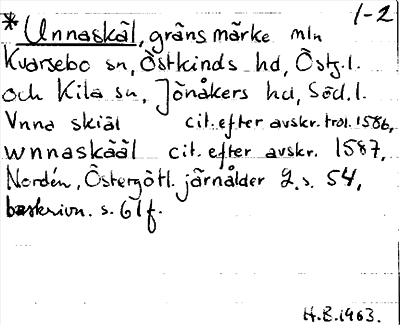 1-2
*Unnaskäl, gränsmärke mln
Kvarsebo sn, Östkinds hd, Östg.l.
och Kila sn, Jönåkers hd, Söd.l.
Vnna skiäl cit. efter avskr. trol. 1586,
wnnaskääl cit. efter avskr. 1587,
Nordén, Östergötl. järnålder 2, s. 54,
beskrivn. s. 61f.
H.B.1963.